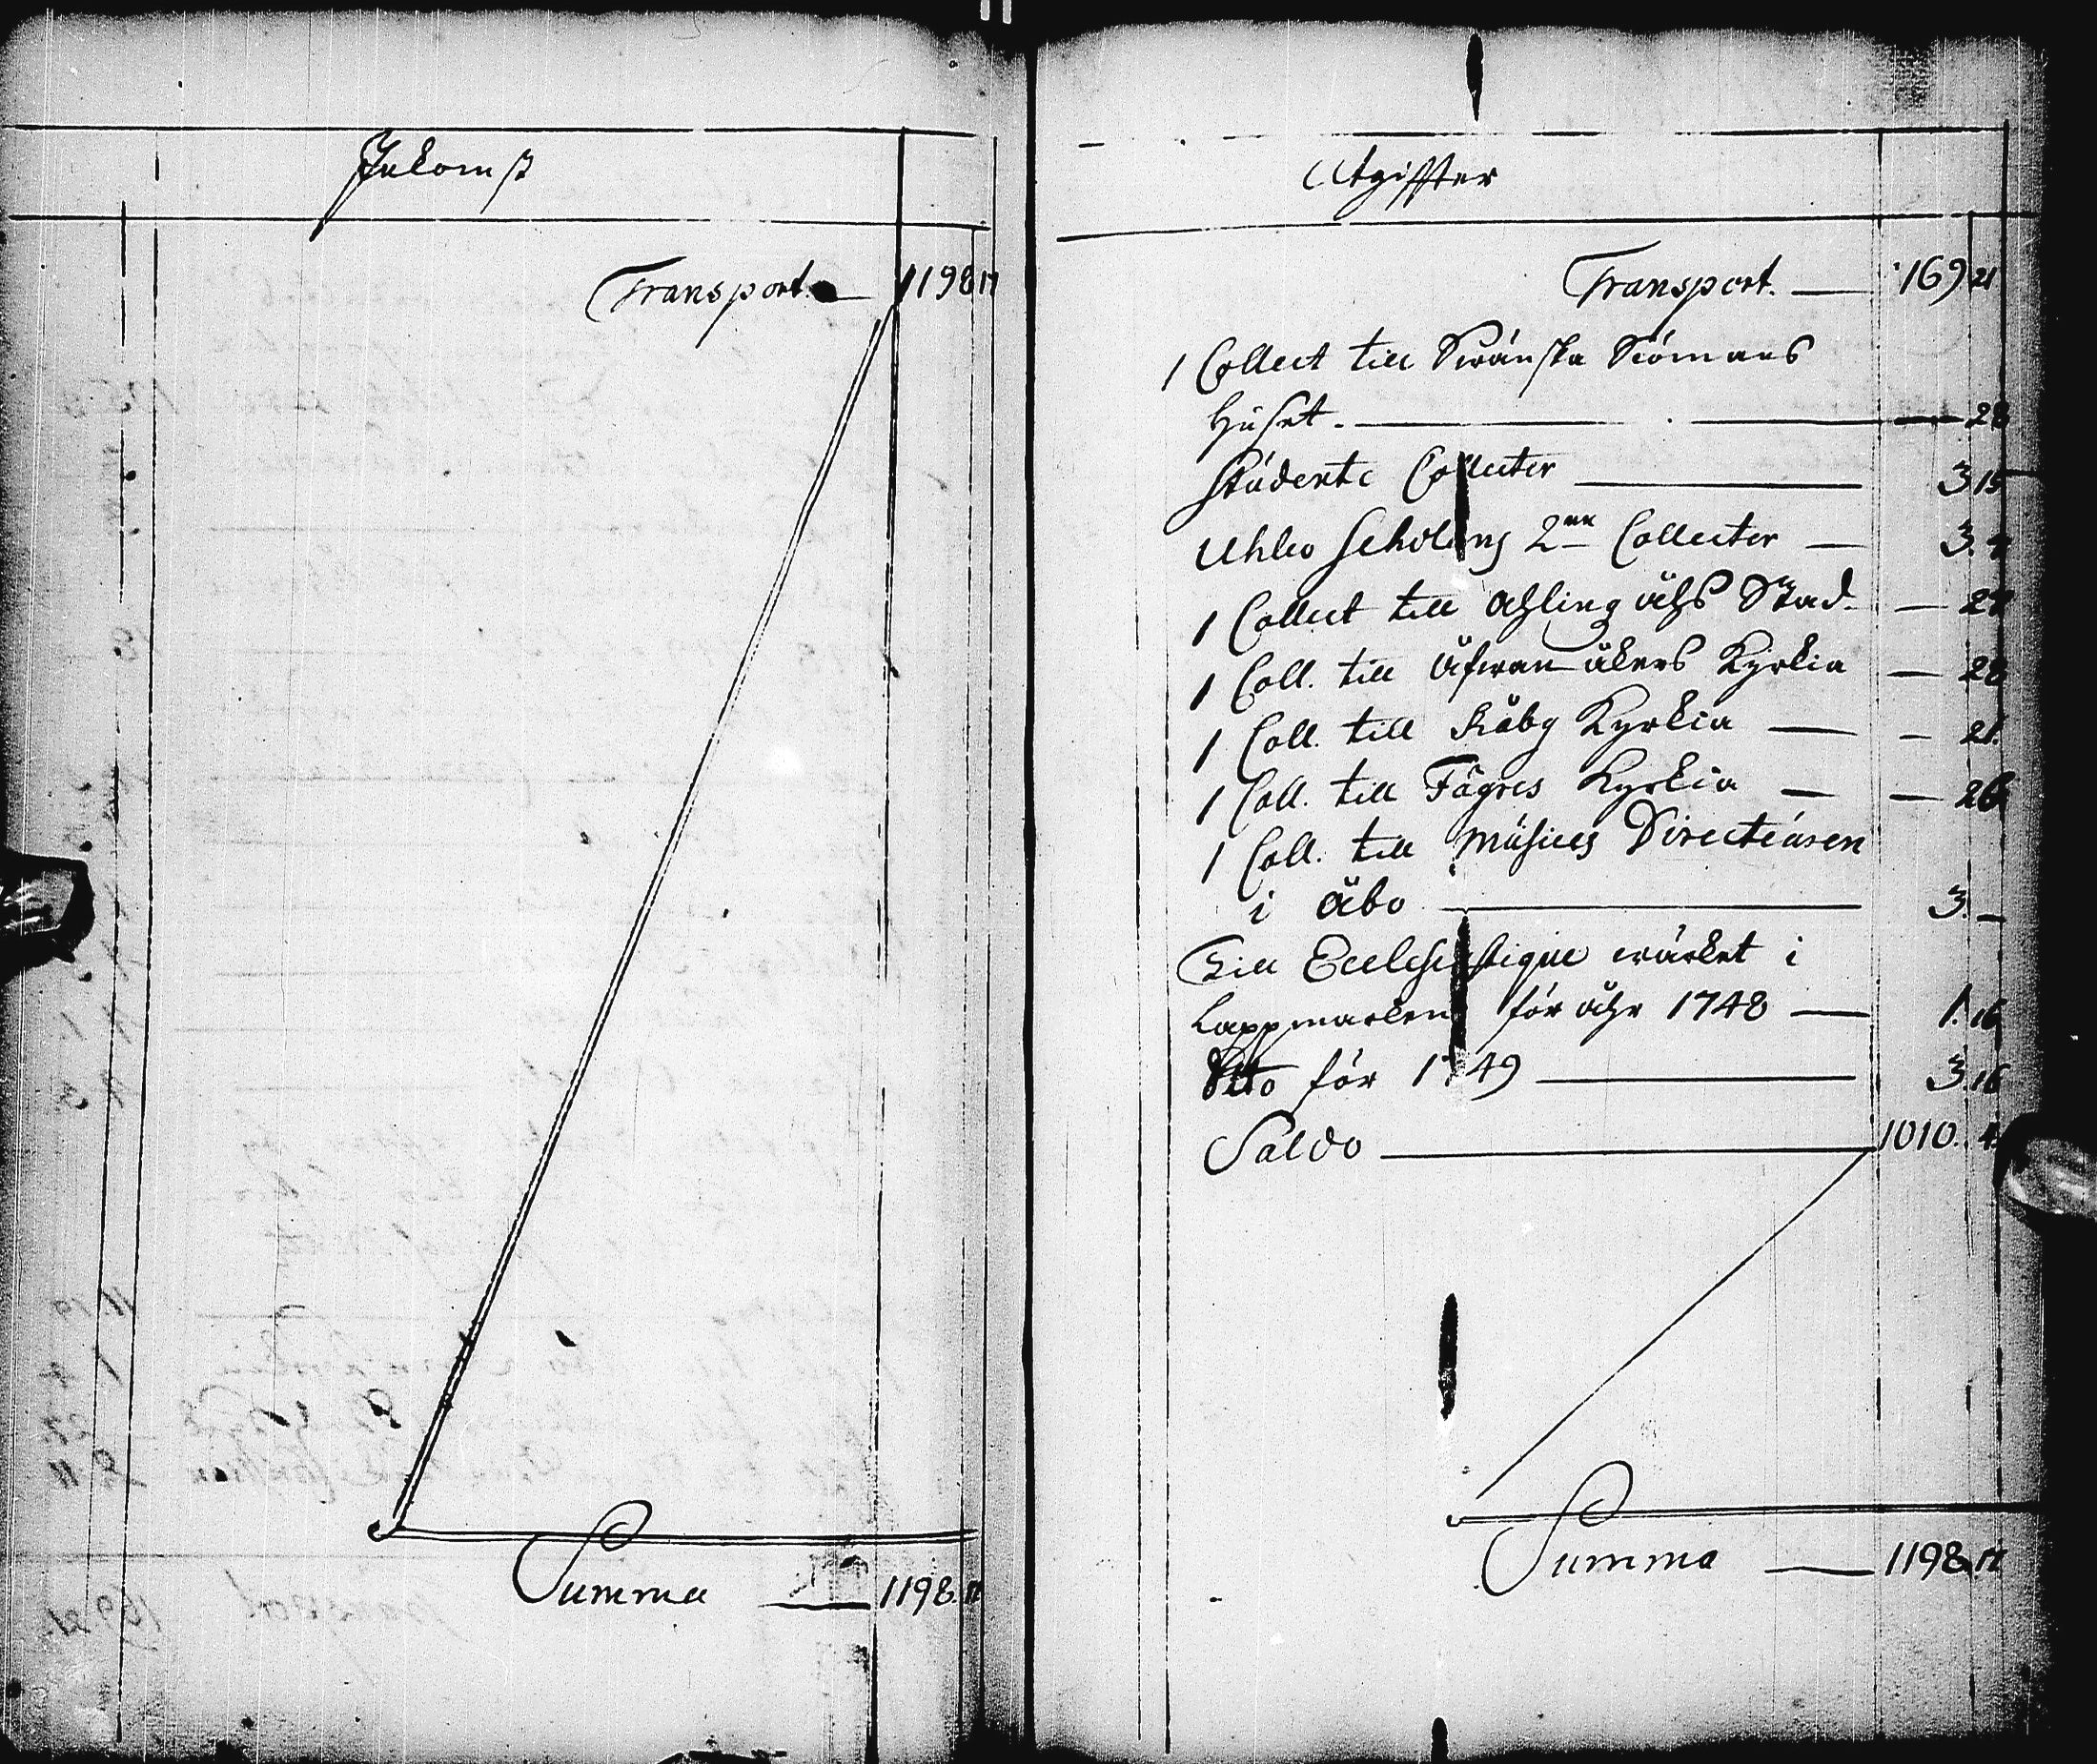 Inkomst
Transport. — 1198 17
Summa — 1198. 17
Utgiffter
Transport. — 169 21
1 Collect till Swänska Siömans
Huset. — — 28
Studente Collecter — 3 15
Uhleo Scholens 2nne Collecter — 3. 4
1 Collect till Ahlingsåhs Stad. — 27
1 Coll. till Åfwanåkers Kyrkia — 28
1 Coll. till Råby Kyrkia — 21.
1 Coll. till Fägres Kyrkia — 26
1 Coll. till Musices Directeuren
i Åbo — 3. —
Till Ecclesiastique wärket i
Lappmarken för åhr 1748 — 1. 16
Ditto för 1749 — 3. 16
Saldo — 1010. 4.
Summa — 1198. 17